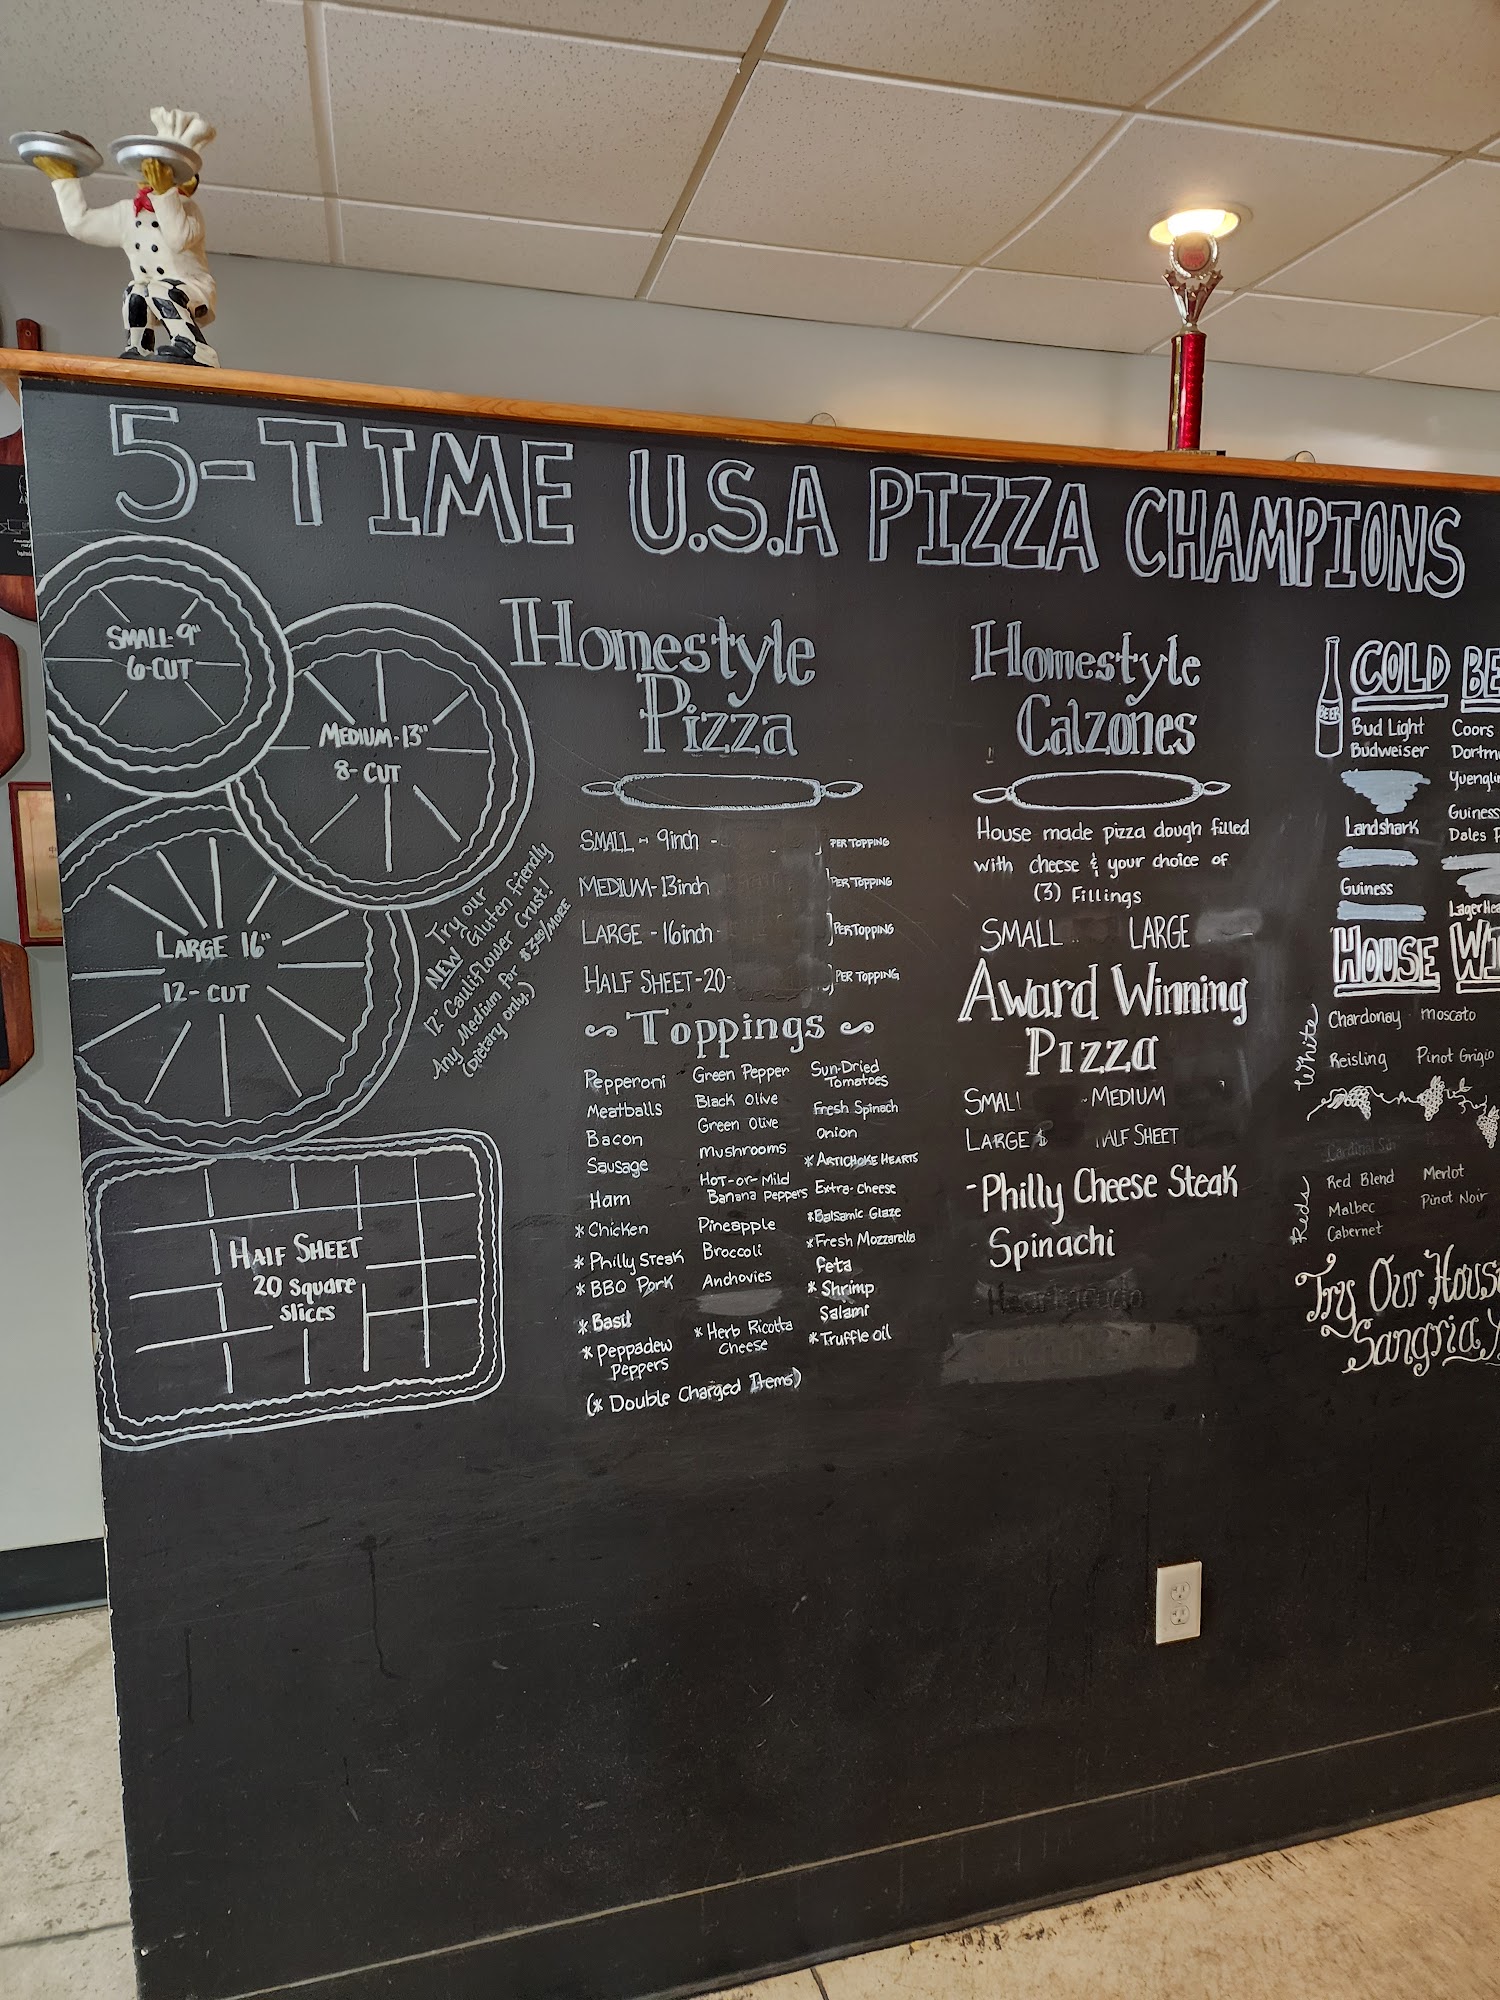 5-TIME U.S.A PIZZA CHAMPIONS
SMALL-9"
6-CUT
MEDIUM-13"
8-CUT
LARGE 16"
12-CUT
HALF SHEET
20 Square
slices
Try our
NEW "Gluten friendly
12" Cauliflower Crust!
Any Medium for $3.00/MORE
(Dietary only.)
Homestyle
Pizza
SMALL - 9inch - PER TOPPING
MEDIUM-13inch PER TOPPING
LARGE - 16inch PER TOPPING
HALF SHEET-20- PER TOPPING
Toppings
Pepperoni
Meatballs
Bacon
Sausage
Ham
*Chicken
*Philly Steak
*BBQ Pork
*Basil
*Peppadew
Peppers
Green Pepper
Black Olive
Green Olive
Mushrooms
Hot-or-Mild
Banana Peppers
Pineapple
Broccoli
Anchovies
*Herb Ricotta
Cheese
Sun-Dried
Tomatoes
Fresh Spinach
Onion
*ARTICHOKE HEARTS
Extra-Cheese
*Balsamic Glaze
*Fresh Mozzarella
Feta
*Shrimp
Salami
*Truffle Oil
(* Double Charged Items)
Homestyle
Calzones
House made pizza dough filled
with cheese & your choice of
(3) Fillings
SMALL LARGE
Award Winning
Pizza
SMALL - MEDIUM
LARGE $ HALF SHEET
-Philly Cheese Steak
Spinachi
BEER
COLD BE
Bud Light
Budweiser
Landshark
Guiness
Coors
Dortmu
Yuenglin
Guiness
Dales P
LagerHea
HOUSE WI
White
Chardonay moscato
Reisling Pinot Grigio
Reds
Red Blend Merlot
Malbec Pinot Noir
Cabernet
Try Our House
Sangria